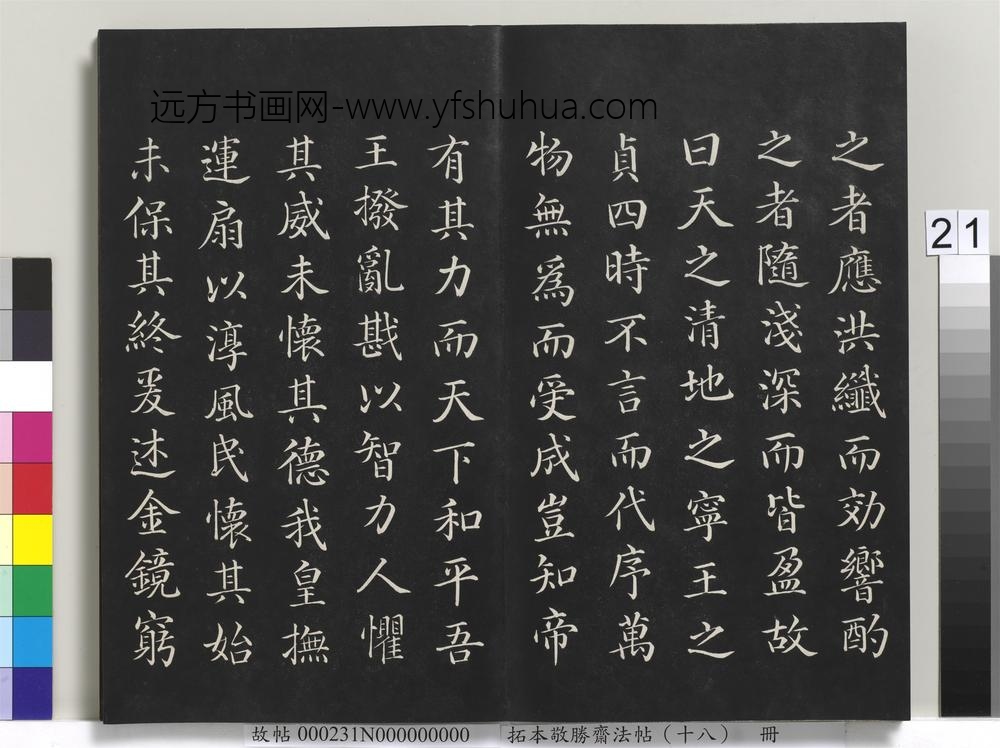 远方书画网-www.yfshuhua.com
之者應洪纖而効響酌
之者隨淺深而皆盈故
曰天之清地之寧王之
貞四時不言而代序萬
物無為而受成豈知帝
有其力而天下和平吾
王撥亂戡以智力人懼
其威未懷其德我皇撫
運扇以淳風民懷其始
未保其終爰述金鏡窮
21
故帖 000231N000000000 拓本敬勝齋法帖(十八) 冊